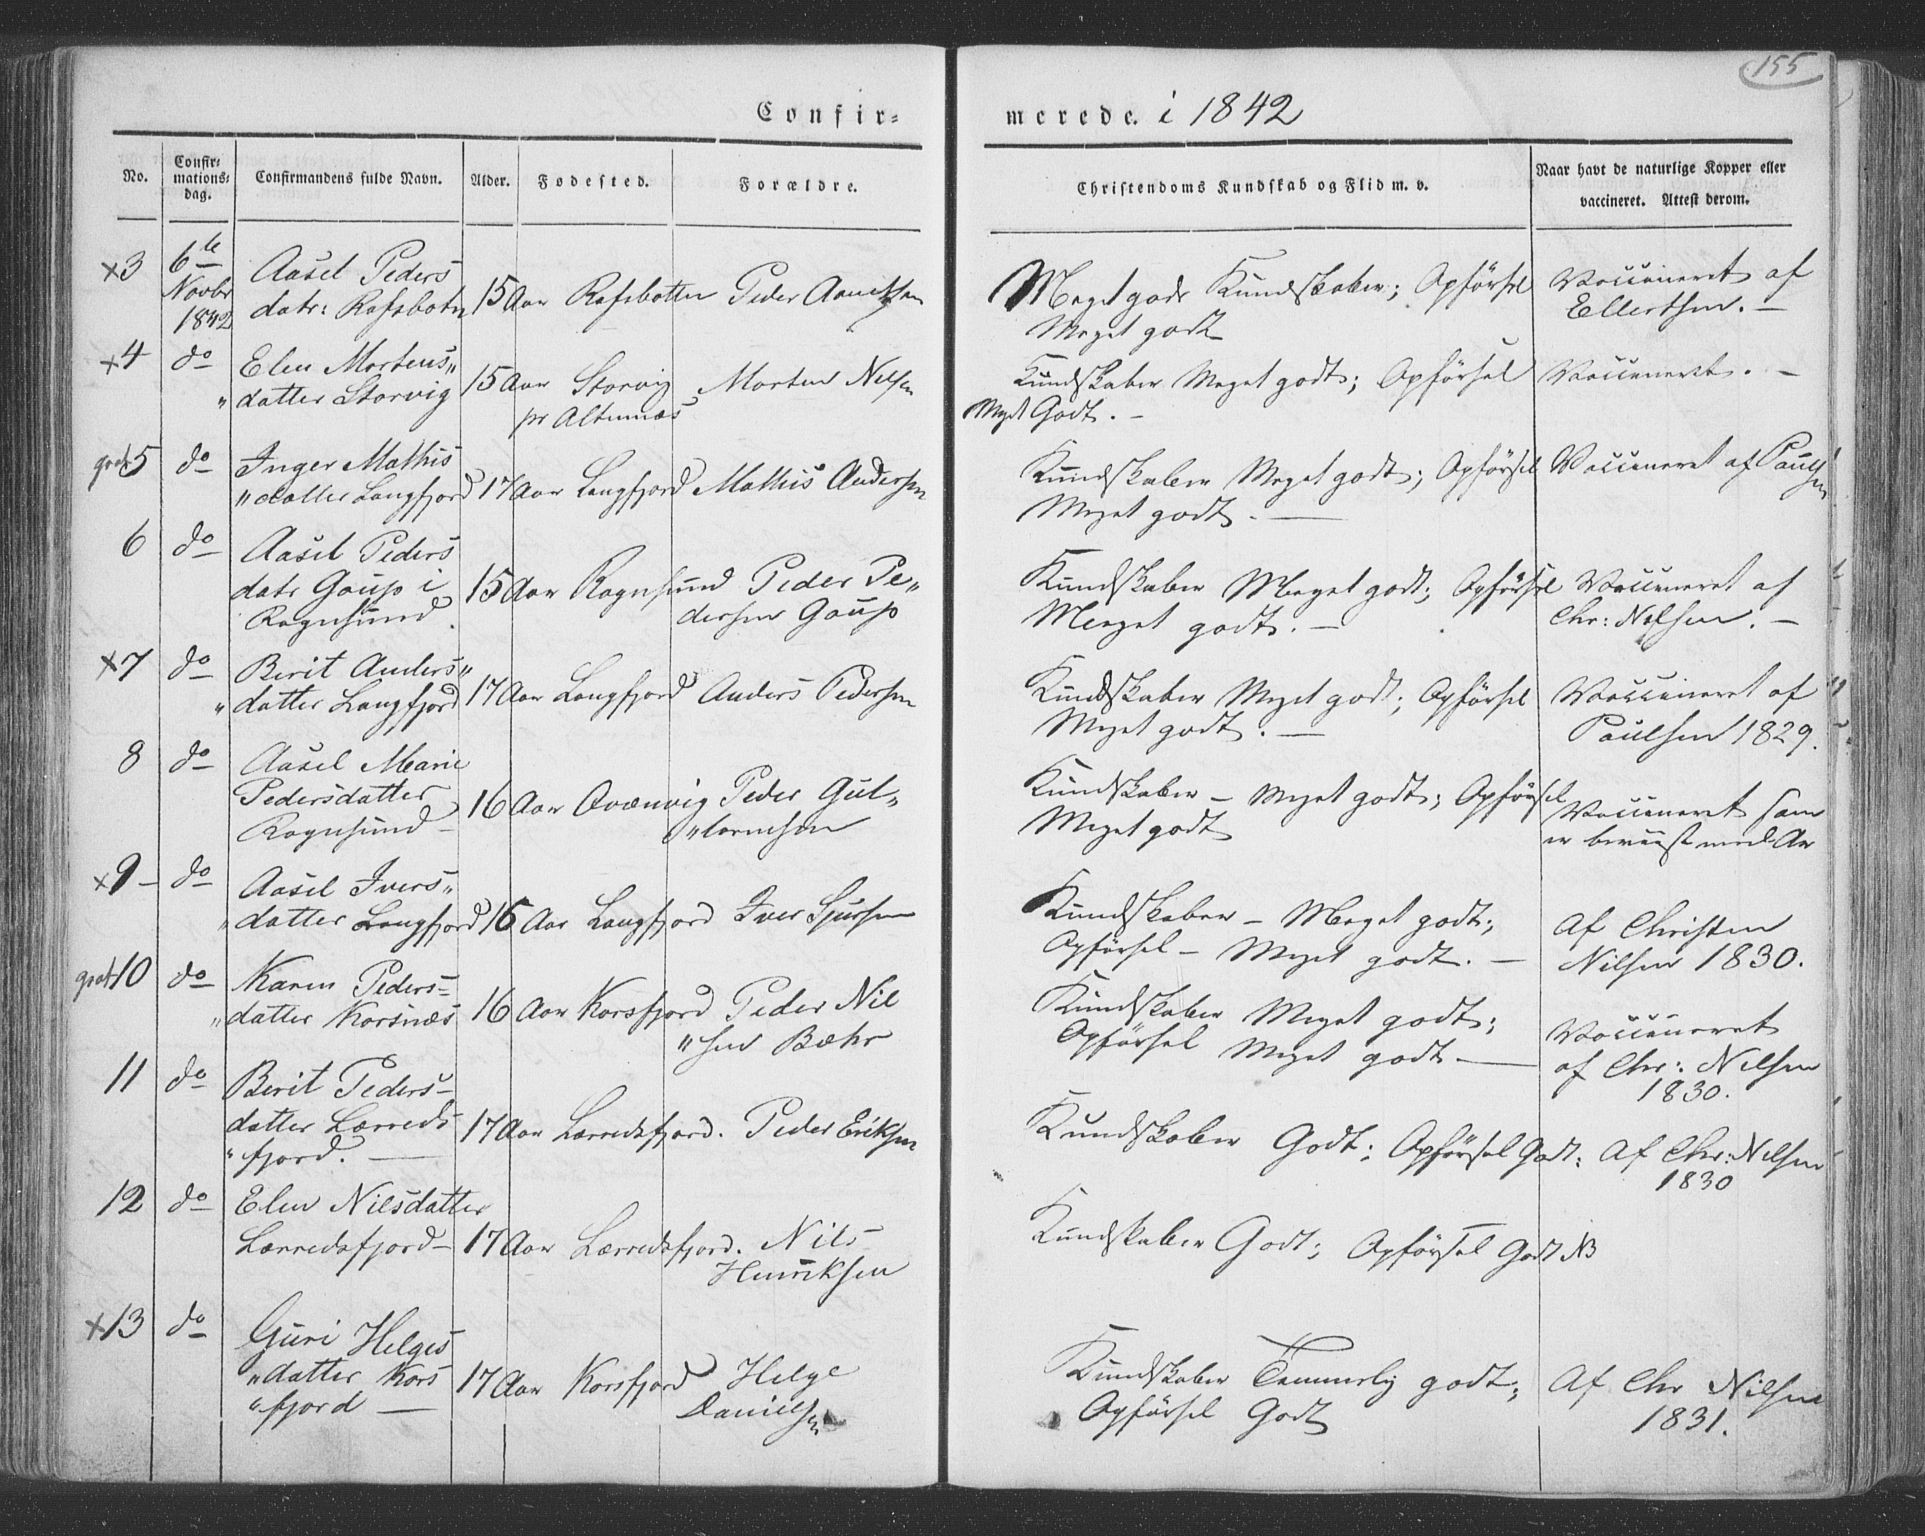 155
Confir=
merede. i 1842
No.
Confir=
mations=
dag.
Confirmandens fulde Navn.
Alder.
Fodested.
Forældre.
Christendoms Kundskab og Flid m. v.
Naar havt de naturlige Kopper eller
vaccineret. Attest derom.
x3 6te Novbr 1842
Aasel Peders
datr: Rafsbotn
15 Aar Rafsbotten Peder
Meget gode Kundskaber; Opførsel
Meget godt
Vaccineret af
Ellertsen. —
x4 do
Elen Mortens„
„datter Storvig
15 Aar Storvig
pr Altennæs
Morten Nilsen
Kundskaber Meget godt; Opførsel
Meget Godt. —
Vaccineret. —
5 do
Inger Mathis
„datter Langfjord
17 Aar Langfjord Mathis Andersen
Kundskaber Meget godt; Opførsel
Meget godt. —
Vaccineret af Paulsen
6 do
Aasel Peders
datr Gaup i
Rognsund.
15 Aar Rognsund Peder Pe„
dersen Gaup
Kundskaber Meget godt; Opførsel
Meget godt. —
Vaccineret af
Chr: Nilsen. —
x7 do
Berit Anders„
„datter Langfjord
17 Aar Langfjord Anders Pedersen
Kundskaber Meget godt; Opførsel
Meget godt. —
Vaccineret af
Paulsen 1829.
8 do
Aasel Marie
Pedersdatter
Rognsund —
16 Aar Qvænvig Peder Gut„
„tormsen
Kundskaber — Meget godt; Opførsel
Meget godt
Vaccineret som
er beviist med Ar
x9 — do
Aasel Ivers„
„datter Langfjord
16 Aar Langfjord Iver Sjursen
Kundskaber — Meget godt;
Opførsel — Meget godt. —
Af Christen
Nilsen 1830.
10 do
Karen Peders=
„datter Korsnæs
16 Aar Korsfjord Peder Nil
„sen Bæhr
Kundskaber Meget godt;
Opførsel Meget godt —
Vaccineret
af Chr: Nilsen
1830.
11 do
Berit Peders=
datter Lærreds
„fjord. —
17 Aar Lærredsfjord. Peder Eriksen
Kundskaber Godt; Opførsel Godt.
Af Chr: Nilsen
1830
12 do
Elen Nilsdatter
Lærredsfjord —
17 Aar Lærredsfjord. Nils
Henriksen
Kundskaber Godt; Opførsel Godt NB
x13 do
Guri Helges
„datter Kors
„fjord —
17 Aar Korsfjord Helge
Danielsen
Kundskaber Temmelig godt;
Opførsel Godt
Af Chr Nilsen
1831.